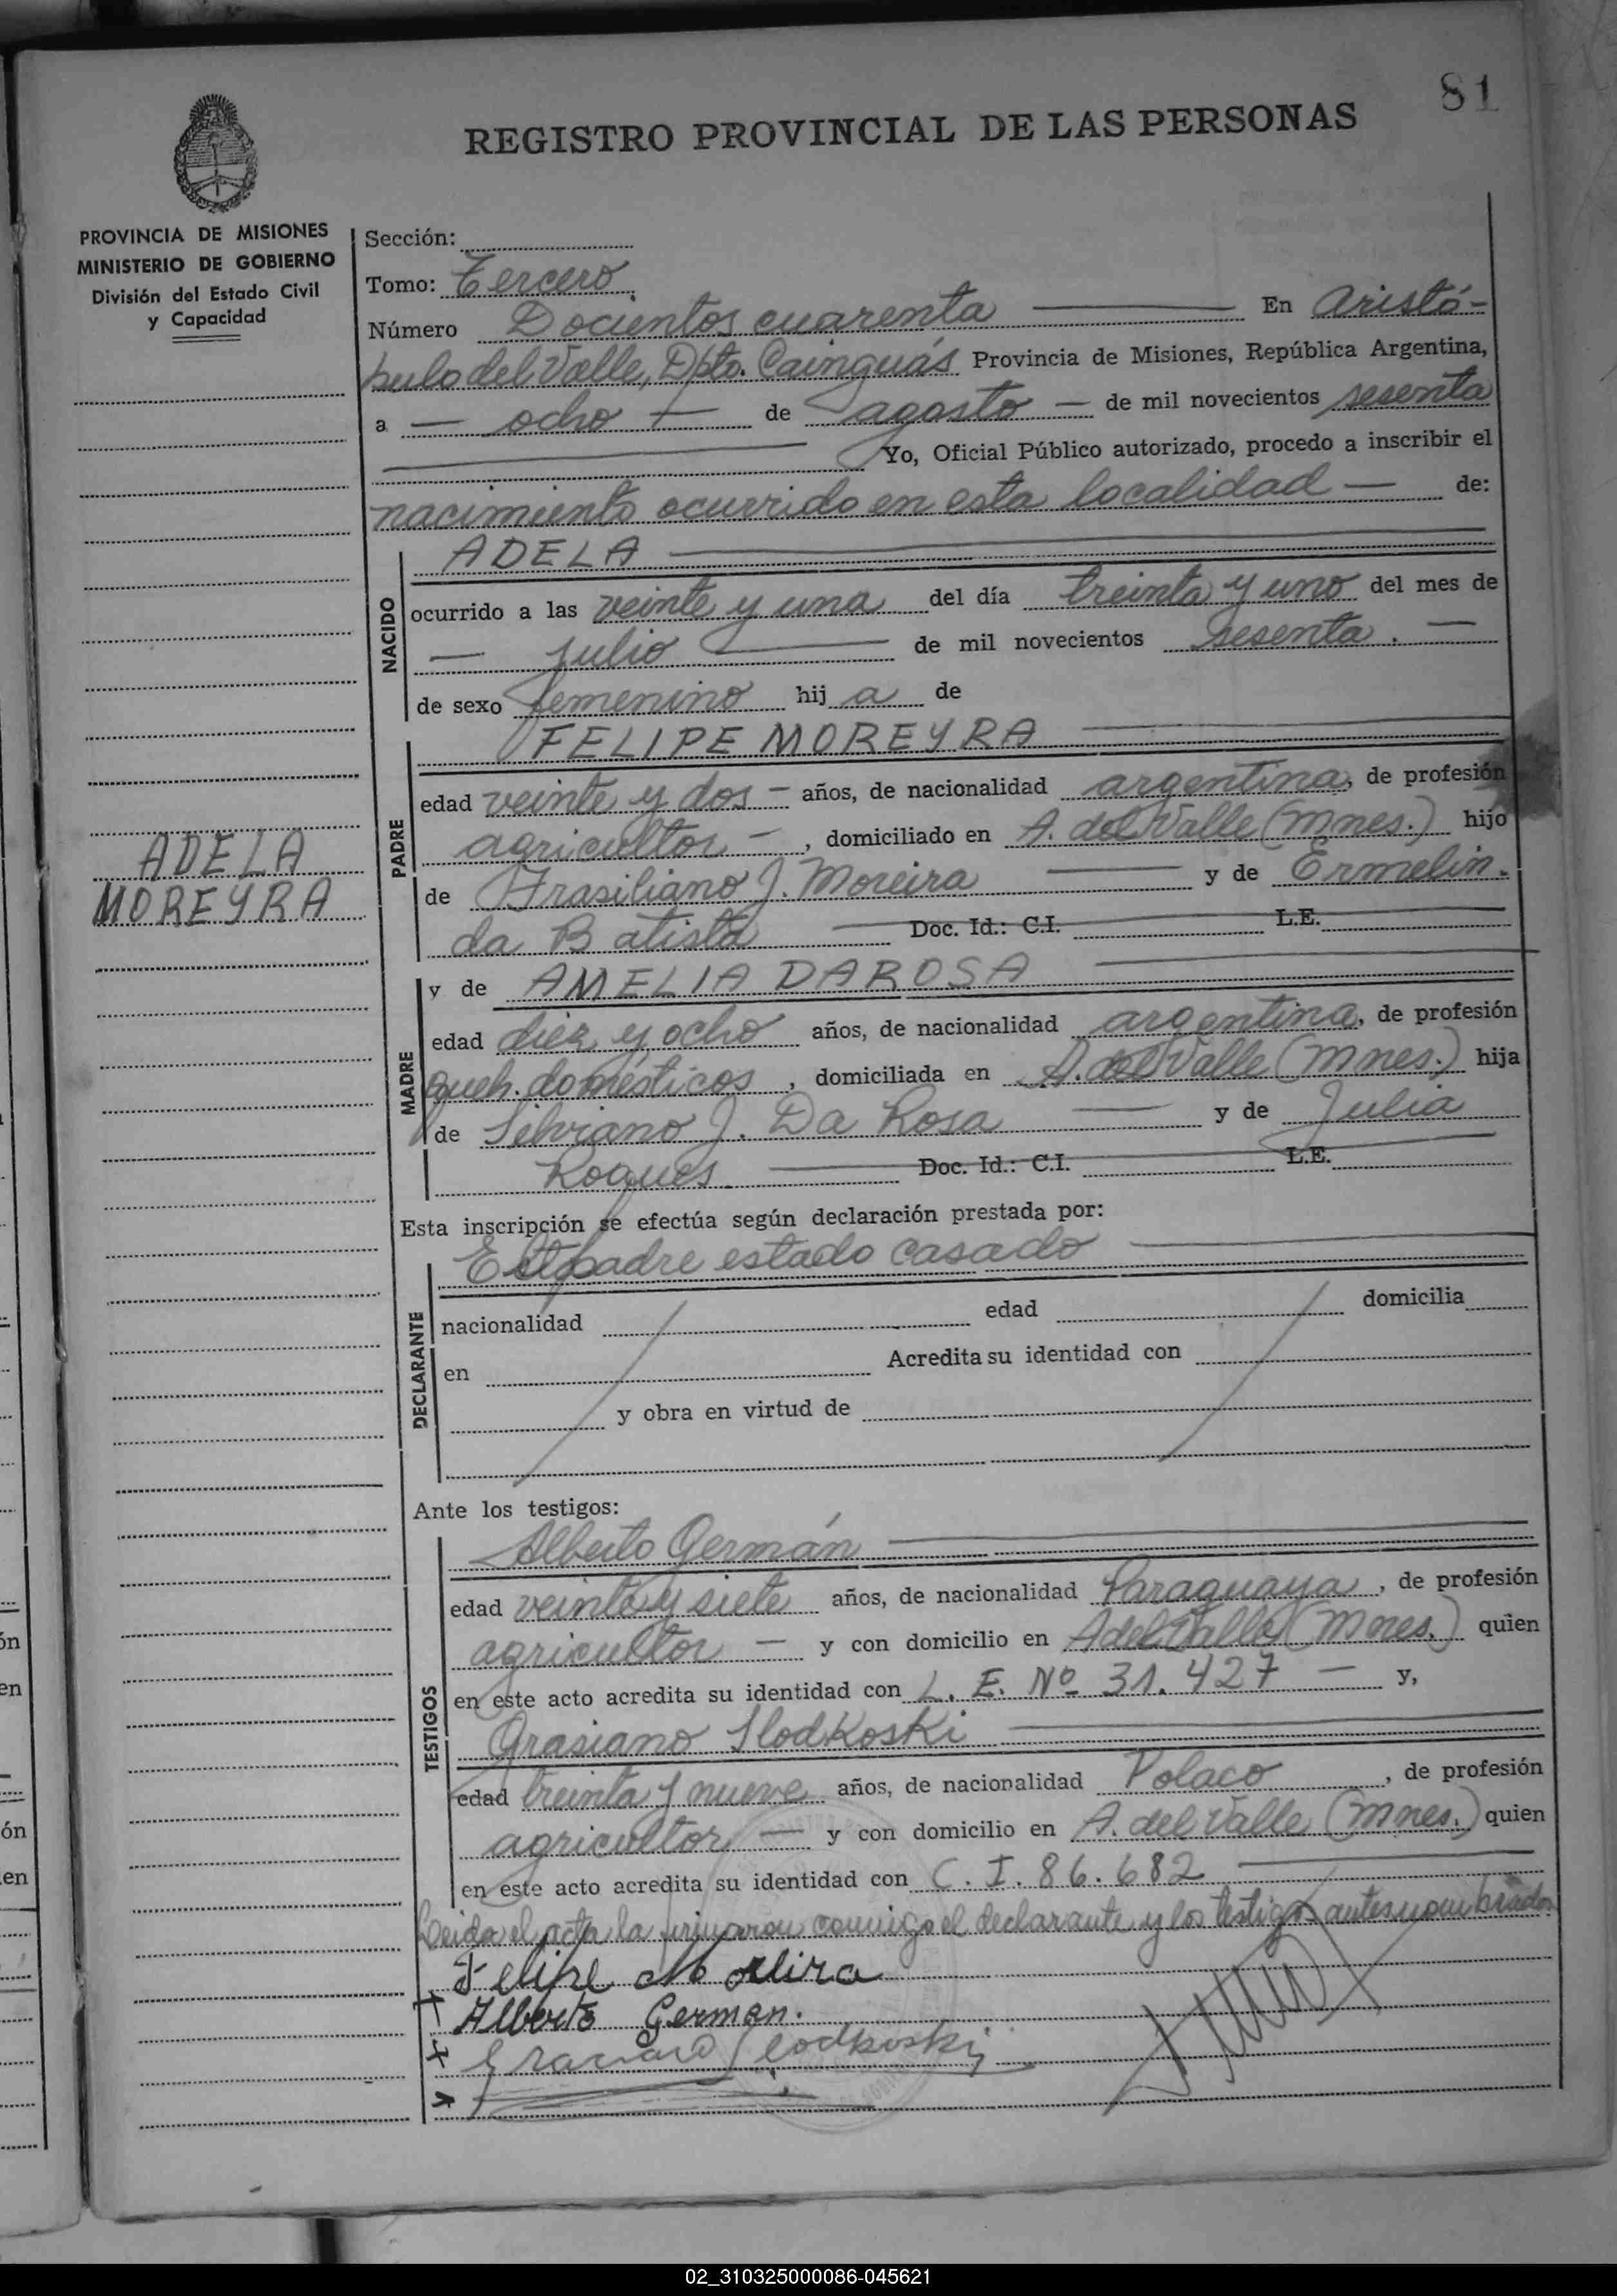 81
REGISTRO PROVINCIAL DE LAS PERSONAS
PROVINCIA DE MISIONES
MINISTERIO DE GOBIERNO
División del Estado Civil
y Capacidad
ADELA
MOREYRA
Sección:
Tomo: Tercero
Número Docientos cuarenta En Aristó-
bulo del Valle, Dpto. Cainguás Provincia de Misiones, República Argentina,
a — ocho — de agosto — de mil novecientos sesenta
Yo, Oficial Público autorizado, procedo a inscribir el
nacimiento ocurrido en esta localidad — de:
NACIDO
ADELA
ocurrido a las veinte y una del día treinta y uno del mes de
— julio — de mil novecientos sesenta. —
de sexo femenino hij a de
PADRE
FELIPE MOREYRA
edad veinte y dos — años, de nacionalidad argentina, de profesión
agricultor —, domiciliado en A. del Valle (Mnes.) hijo
de Frasiliano J. Moreira y de Ermelin-
da Batista Doc. Id.: C.I. L.E.
MADRE
y de AMELIA DAROSA
edad diez y ocho años, de nacionalidad argentina, de profesión
queh. domésticos, domiciliada en A. del Valle (Mnes.) hija
de Silviano J. Da Rosa y de Julia
Roques. Doc. Id.: C.I. L.E.
Esta inscripción se efectúa según declaración prestada por:
DECLARANTE
El padre estado casado
nacionalidad edad domicilia
en Acredita su identidad con
y obra en virtud de
Ante los testigos:
TESTIGOS
Alberto Germán
edad veinte y siete años, de nacionalidad Paraguaya, de profesión
agricultor — y con domicilio en A del Valle (Mnes.) quien
en este acto acredita su identidad con L. E. Nº 31.427 — y,
Grasiano Slodkoski
edad treinta y nueve años, de nacionalidad Polaco, de profesión
agricultor — y con domicilio en A. del Valle (Mnes.) quien
en este acto acredita su identidad con C. I. 86.682
Leida el acta la firmaron conmigo el declarante y los testigos antes nombrados
Felipe Moreira
Alberto German.
Graciano Slodkoski
02_310325000086-045621